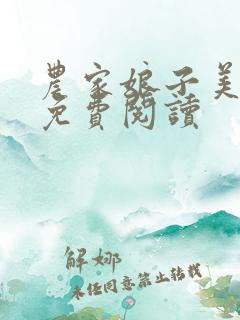 農家娘子美
免費閱讀
解娜
未任同意禁止轉載